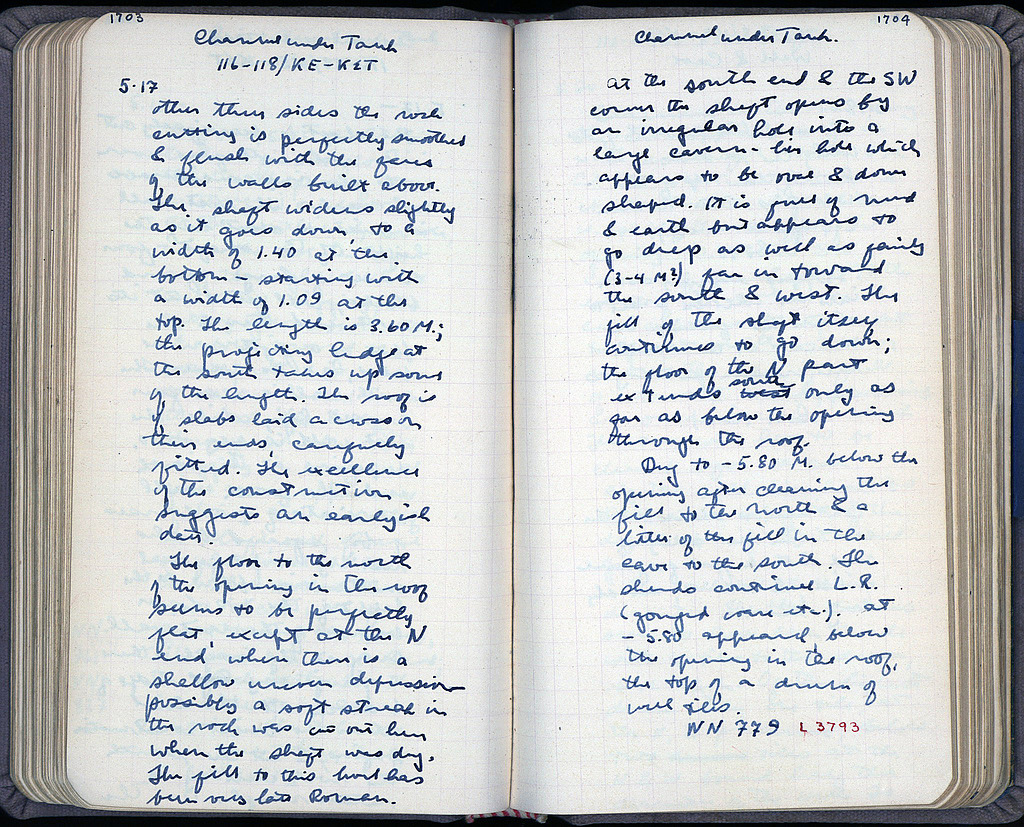 1703
Channel under Tank
116-118/KE-KET
5-17
other three sides the rock
cutting is perfectly smoothed
& flush with the faces
of the walls built above.
The shaft widens slightly
as it goes down, to a
width of 1.40 at the
bottom - starting with
a width of 1.09 at the
top. The length is 3.60 M.;
the projecting ledge at
the south takes up some
of the length. The roof is
of slabs laid across on
their ends, carefully
fitted. The excellence
of the construction
suggests an earlyish
date.
The floor to the north
of the opening in the roof
seems to be perfectly
flat, except at the N
end where there is a
shallow uneven depression
possibly a soft streak in
the rock was cut out here
when the shaft was dug.
The fill to this level has
been very late Roman.
1704
Channel under Tank.
at the south end & the SW
corner the shaft opens by
an irregular hole into a
large cavern-like hole which
appears to be oval & dome
shaped. It is full of mud
& earth but appears to
go deep as well as fairly
(3-4 M?) far in toward
the south & west. The
fill of the shaft itself
continues to go down;
the floor of the N part
extends south only as
far as below the opening
through the roof.
Dug to -5.80 M. below the
opening after cleaning the
fill to the north & a
little of the fill in the
cave to the south. The
sherds continue L.R.
(gouged ware etc.). at
-5.80 appeared, below
the opening in the roof,
the top of a drum of
well tiles.
NN 779 L 3793